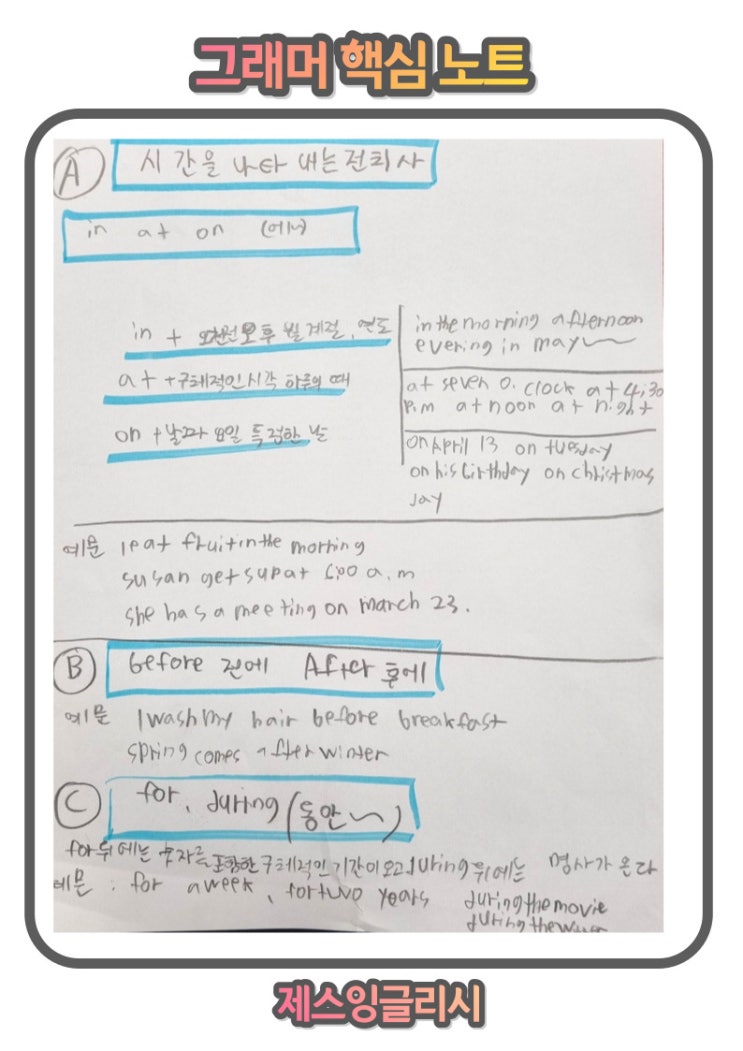 그래머 핵심 노트
A 시간을 나타내는 전치사
in at on (에서)
in + 오전 오후 월 계절, 연도
in the morning afternoon
evening in may
at + 구체적인 시각 하루의 때
at seven o. clock at 4:30
p.m at noon at night
on + 날짜 요일 특정한 날
on April 13 on tuesday
on his birthday on christmas
day
예문 I eat fruit in the morning
susan gets up at 6:00 a.m
she has a meeting on march 23.
B before 전에 After 후에
예문 I wash my hair before breakfast
spring comes after winter
C for, during (동안~)
for 뒤에는 숫자를 포함한 구체적인 기간이 오고 during 뒤에는 명사가 온다
예문 : for a week, for two years during the movie
during the
제스잉글리시